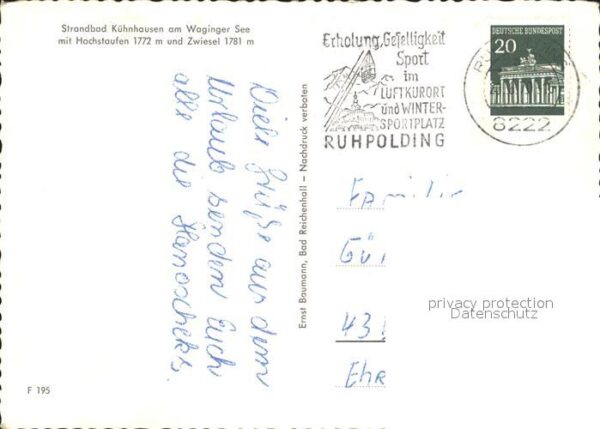 Strandbad Kühnhausen am Waginger See
mit Hochstaufen 1772 m und Zwiesel 1781 m
Viele Grüße aus dem
Urlaub senden Euch
alle die Hanoscheks.
Ernst Baumann, Bad Reichenhall – Nachdruck verboten
F 195
Erholung, Geselligkeit
Sport
im
LUFTKURORT
und WINTER-
SPORTPLATZ
RUHPOLDING
DEUTSCHE BUNDESPOST
20
8222
Familie
GÜ
43
Ehr
privacy protection
Datenschutz